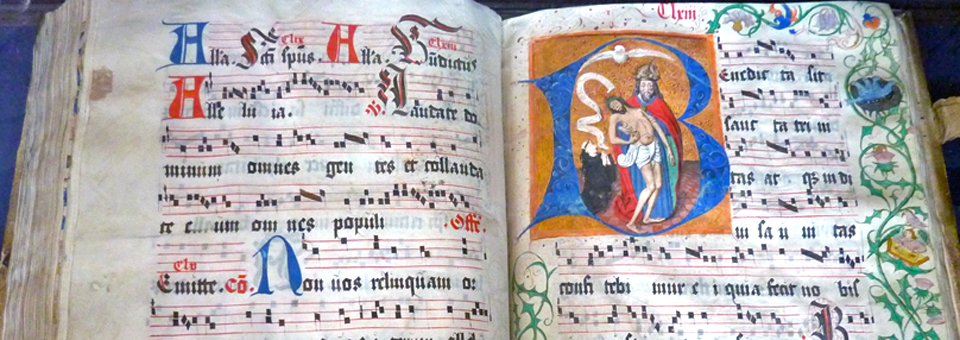 Clix Clxiii
Alla. Sc̄ti sp̄us. Alla. Bn̄dictus
Alle lu ia. ℣. Laudate do
minum omnes gen tes et collauda
te e um om nes populi .Offē.
Clv
Emitte. Cō. Non uos relinquam or
Clxiii
Benedic ta sit
sanc ta tri ni
tas at qꝫ in di
ui sa u ni tas
confi tebi mur e i quia fecit no bis